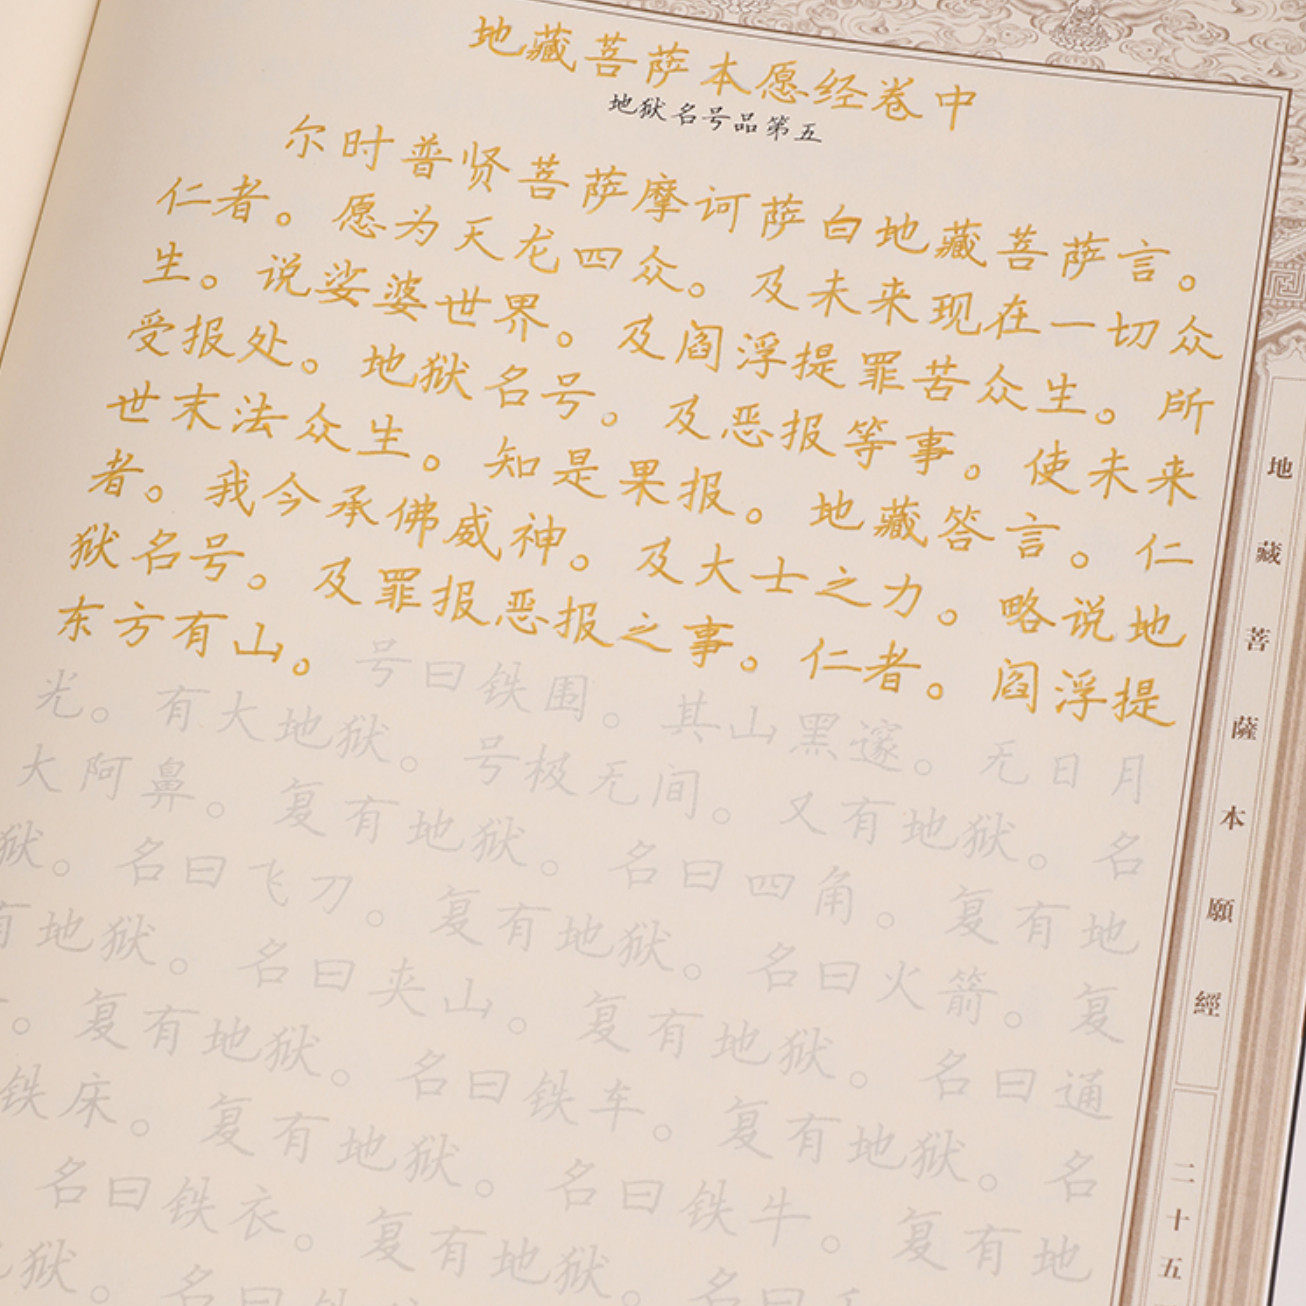 地藏菩萨本愿经卷中
地狱名号品第五
尔时普贤菩萨摩诃萨白地藏菩萨言。
仁者。愿为天龙四众。及未来现在一切众
生。说娑婆世界。及阎浮提罪苦众生。所
受报处。地狱名号。及恶报等事。使未来
世末法众生。知是果报。地藏答言。仁
者。我今承佛威神。及大士之力。略说地
狱名号。及罪报恶报之事。仁者。阎浮提
东方有山。号曰铁围。其山黑邃。无日月
光。有大地狱。号极无间。又有地狱。名
大阿鼻。复有地狱。名曰四角。复有地
狱。名曰飞刀。复有地狱。名曰火箭。复
有地狱。名曰夹山。复有地狱。名曰通
。复有地狱。名曰铁车。复有地狱。名
铁床。复有地狱。名曰铁牛。复有地
名曰铁衣。复有地狱。名曰
狱。名曰
地藏菩薩本願經
二十五